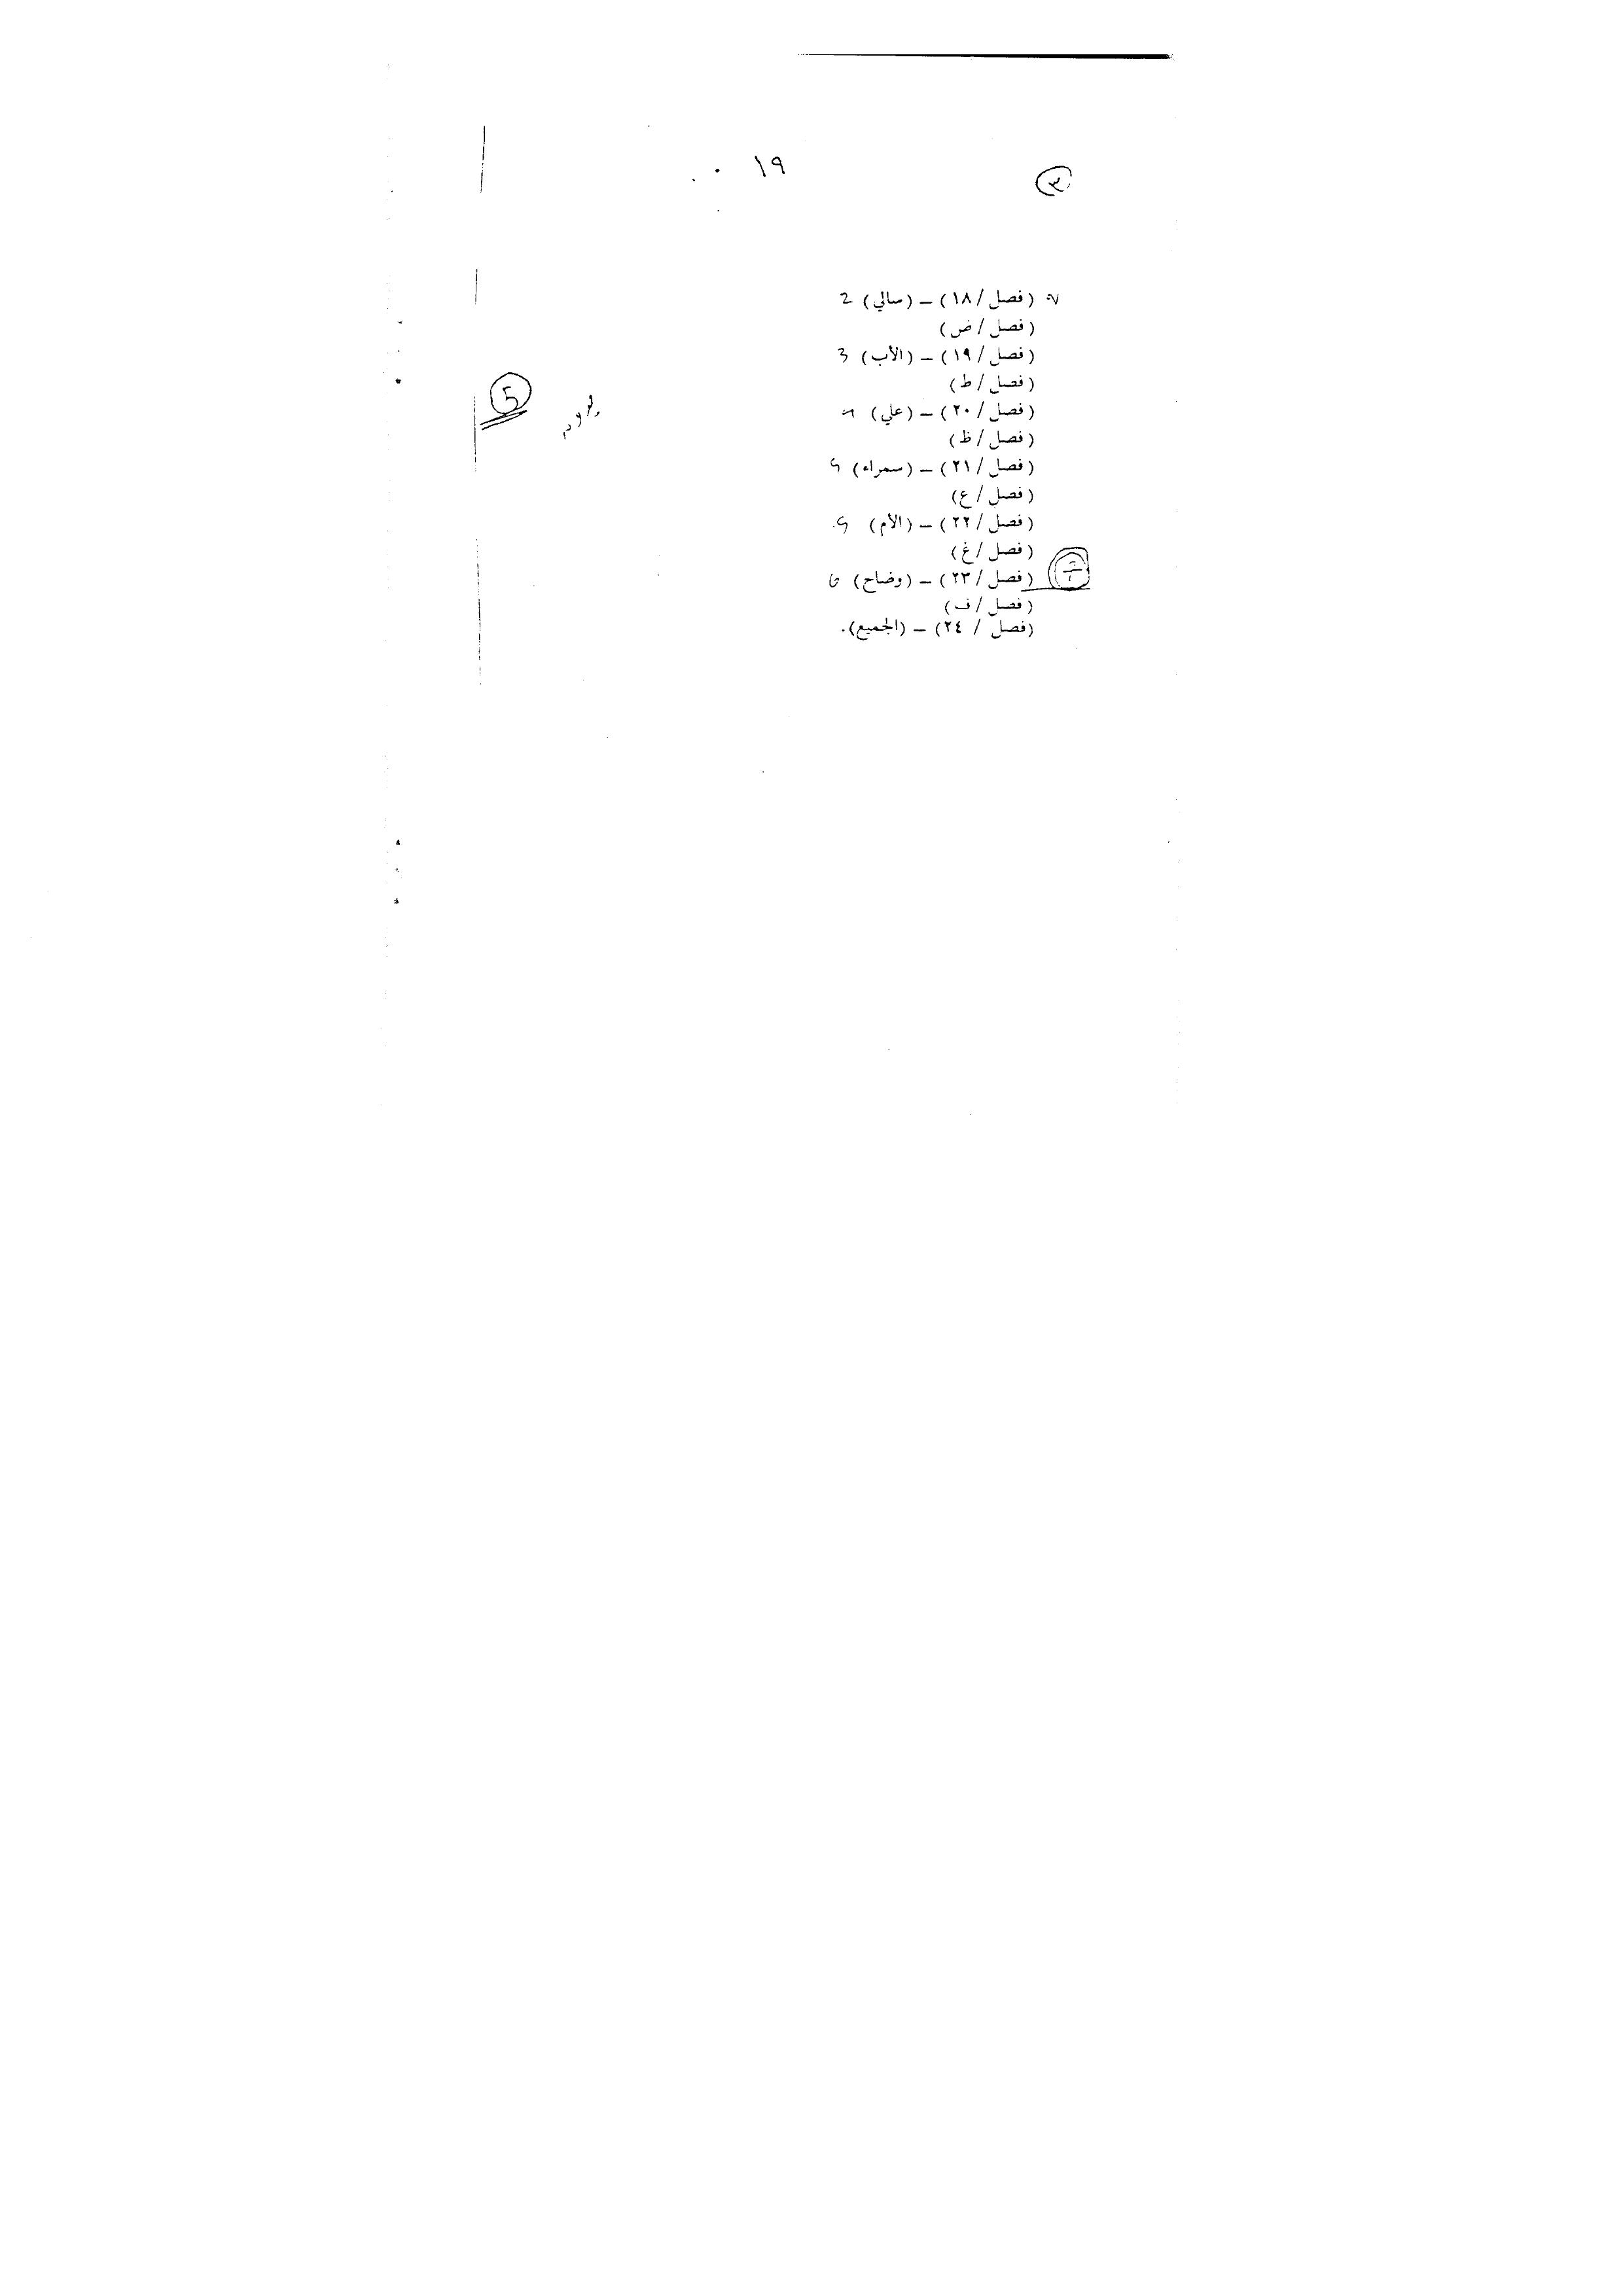 ١٩
٣
(فصل / ١٨) – (سالي) 2
(فصل / ض)
(فصل / ١٩) – (الأب) 3
(فصل / ط)
(فصل / ٢٠) – (علي)
(فصل / ظ)
(فصل / ٢١) – (سمراء)
(فصل / ع)
(فصل / ٢٢) – (الأم)
(فصل / غ)
(فصل / ٢٣) – (وضاح)
(فصل / ف)
(فصل / ٢٤) – (الجميع).
5